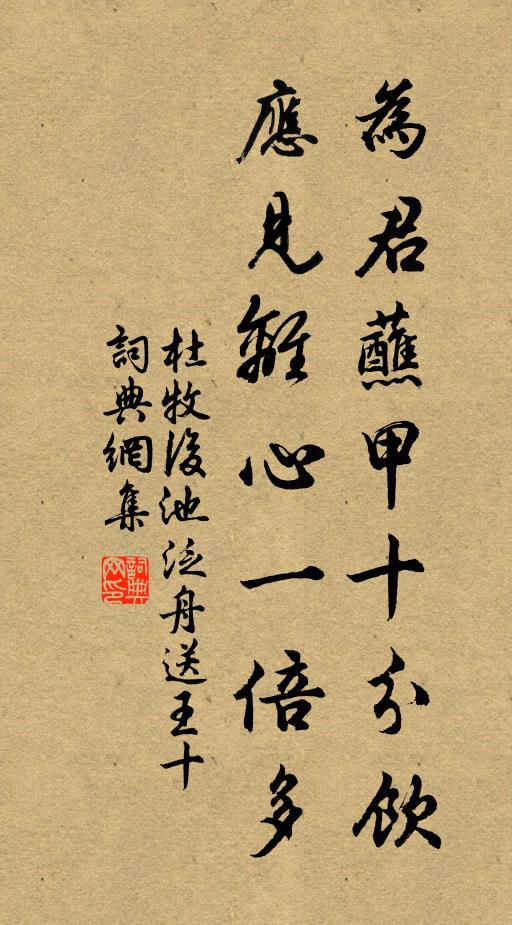 為君蘸甲十分飲
應見離心一倍多
杜牧後池泛舟送王十
詞典網集
詞典網印